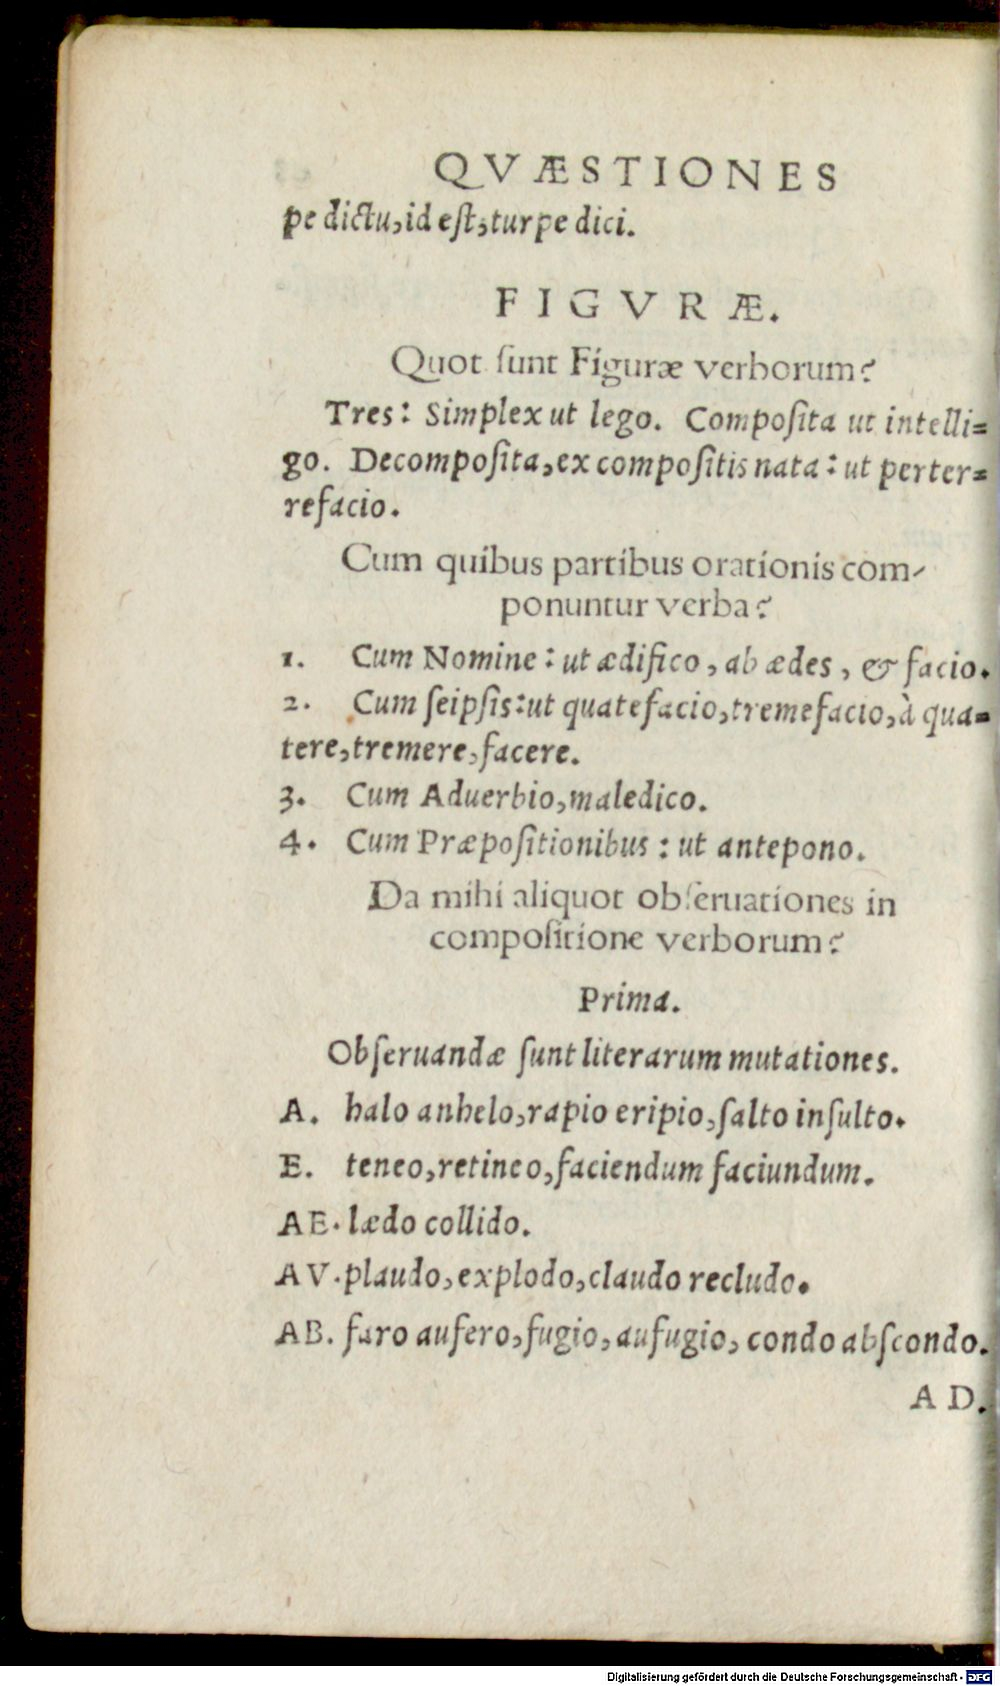 QVÆSTIONES
pe dictu, id eſt, turpe dici.
FIGVRÆ.
Quot ſunt Figuræ verborum?
Tres: Simplex ut lego. Compoſita ut intelli=
go. Decompoſita, ex compoſitis nata: ut perter=
refacio.
Cum quibus partibus orationis com-
ponuntur verba?
1. Cum Nomine: ut ædifico, ab ædes, & facio.
2. Cum ſeipſis: ut quatefacio, tremefacio, à qua=
tere, tremere, facere.
3. Cum Aduerbio, maledico.
4. Cum Præpoſitionibus: ut antepono.
Da mihi aliquot obſeruationes in
compoſitione verborum?
Prima.
Obſeruandæ ſunt literarum mutationes.
A. halo anhelo, rapio eripio, ſalto inſulto.
E. teneo, retineo, faciendum faciundum.
AE. lædo collido.
AV. plaudo, explodo, claudo recludo.
AB. faro aufero, fugio, aufugio, condo abſcondo.
AD.
Digitalisierung gefördert durch die Deutsche Forschungsgemeinschaft - DFG